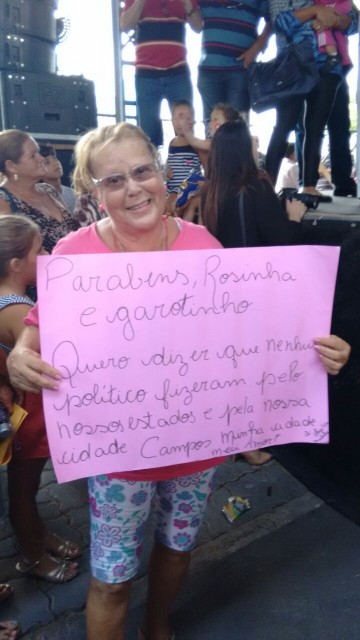 Parabens, Rosinha
e garotinho
Quero dizer que nenhu
político fizeram pelo
nossos estados e pela nossa
cidade Campos minha cidade
meu amor!